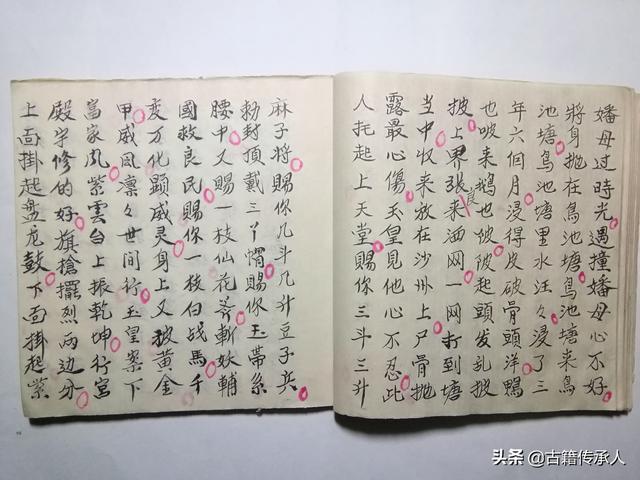 嬸母过時光遇撞嬸母心不好
將身抛在鳥池塘鳥池塘来鳥
池塘鳥池塘里水汪々浸了三
年六個月浸得皮破骨頭洋鴨
也唆来鵝也唆陂起頭发乱披
披上界张良来洒网一网打到塘
当中收来放在沙州上尸骨抛
露最心傷玉皇見他心不忍此
人托起上天堂賜你三斗三升
麻子将賜你几斗几升豆子兵
勅封頂戴三丫帽賜你玉帶糸
腰中又賜一枝仙花斧斬妖輔
國救良民賜你一枝白战馬千
変万化顕威灵身上又披黄金
甲威風凛々世间行玉皇案下
富家凨紫雲台上振乾坤行宫
殿宇修的好旗搶擺烈兩边分
上面掛起盘龙鼓下面掛起紫
头条 @古籍传承人